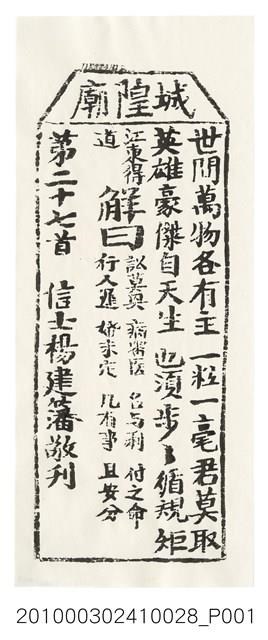 城隍廟
世間萬物各有主 一粒一毫君莫取
英雄豪傑自天生 也須步〻循規矩
江東得道
解曰
訟莫興 病擇醫 名与利 付之命
行人遲 婚未定 凡百事 且安分
第二十七首 信士楊建藩敬刊
201000302410028_P001